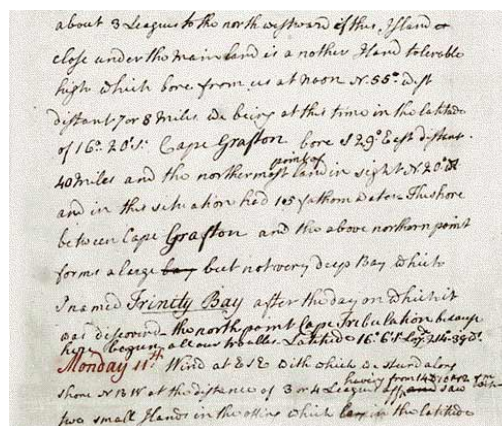 about 3 Leagues to the north westward of this Island &
close under the main land is a nother Iland tolerable
high which bore from us at noon N. 55° West
distant 7 or 8 Miles we being at this time in the latitude
of 16° 20' S: Cape Grafton bore S 29° East distant
40 Miles and the northermost point of land in sight N. 20° W
and in this situation had 10 fathom water. The shore
between Cape Grafton and the above northern point
forms a large bay but not very deep Bay which
I named Trinity Bay after the day on which it
was discover'd the north point Cape Tribulation because
here begun all our troubles. Latitude 16° 6' S Lo.g 214° 39' W.
Monday 11th Wind at ESE with which we stood along
shore NBW at the distance of 3 or 4 Leagues off having from 14 to 10 &12 fm saw
two small Ilands in the offing which lay in the latitude